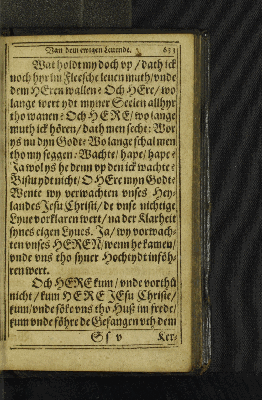 Van dem ewigen Levende. 633
Wat holdt my doch vp / dath ick
noch hyr im Fleesche leuen muth / vnde
dem HEren wallen? Och HEre / wo
lange wert ydt myner Seelen allhyr
tho wanen? Och HERE / wo lange
muth ick hören / dath men secht: Wor
ys nu dyn Godt? Wo lange schal men
tho my seggen: Wachte / hape / hape?
Ja wol ys he denn vp den ick wachte?
Bistu ydt nicht / O HEre myn Godt?
Wente wy verwachten vnses Hey-
landes Jesu Christi / de vnse nichtige
Lyue vorklaren wert / na der Klarheit
synes eigen Lyues. Ja / wy vorwach-
ten vnses HEREN / wenn he kamen /
vnde vns tho syner Hochtydt inföh-
ren wert.
Och HERE kum / vnde vorthü
nicht / kum HERE JEsu Christe /
kum / vnde söke vns tho Huß im frede /
kum vnde föhre de Gefangen vth dem
S s v Ker-